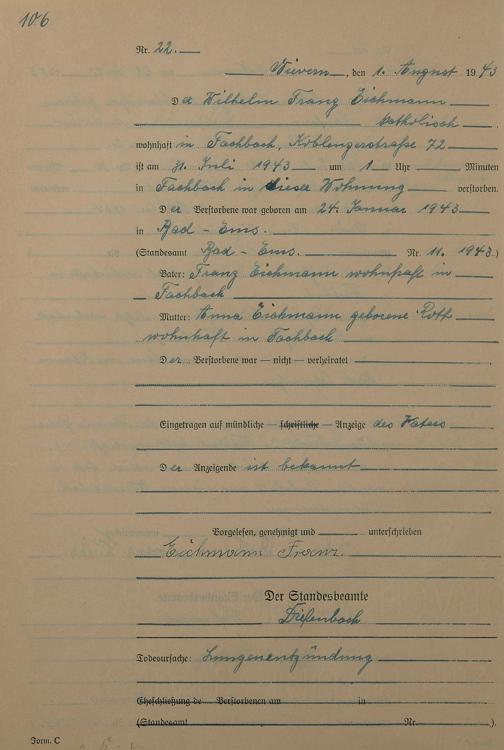 106
Nr. 22.
Nievern, den 1. August 1943
Der Wilhelm Franz Eichmann
katholisch
wohnhaft in Fachbach, Koblenzerstraße 72
ist am 31. Juli 1943 um 1 Uhr Minuten
in Fachbach in dieser Wohnung verstorben.
Der Verstorbene war geboren am 24. Januar 1943
in Bad-Ems.
(Standesamt Bad-Ems. Nr. 11. 1943.)
Vater: Franz Eichmann wohnhaft in
Fachbach
Mutter: Anna Eichmann geborene Roth
wohnhaft in Fachbach
Der Verstorbene war — nicht — verheiratet
Eingetragen auf mündliche — schriftliche — Anzeige des Vaters
Der Anzeigende ist bekannt
Vorgelesen, genehmigt und unterschrieben
Eichmann Franz.
Der Standesbeamte
Diefenbach
Todesursache: Lungenentzündung
Eheschließung de Verstorbenen am in
(Standesamt Nr. ).
Form. C